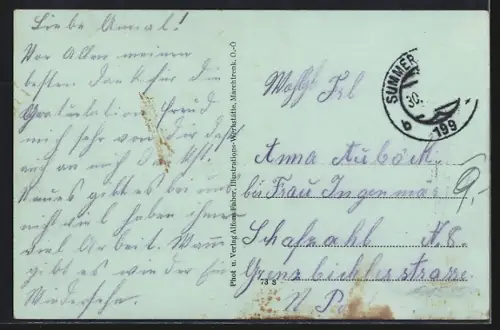 Liebe Amal!
Vor Allen meinen
besten Dank für die
Gratulation Freud
mich sehr von Dir daß
auch an mich
Neues gibt es bei uns
nicht viel haben immer
viel Arbeit. Wann
gibt es wieder ein
Wiedersehn.
Phot u. Verlag Alfons Faber, Illustrations-Werkstätte, Marchtrenk, O.-Ö
73 8
SUMMER
30.
b
199
Wohlg. Frl
Anna Auböck
bei Frau Ingenmar
9,-
Schafzahl N. 8.
Grenzbichlerstrasse
N. P.